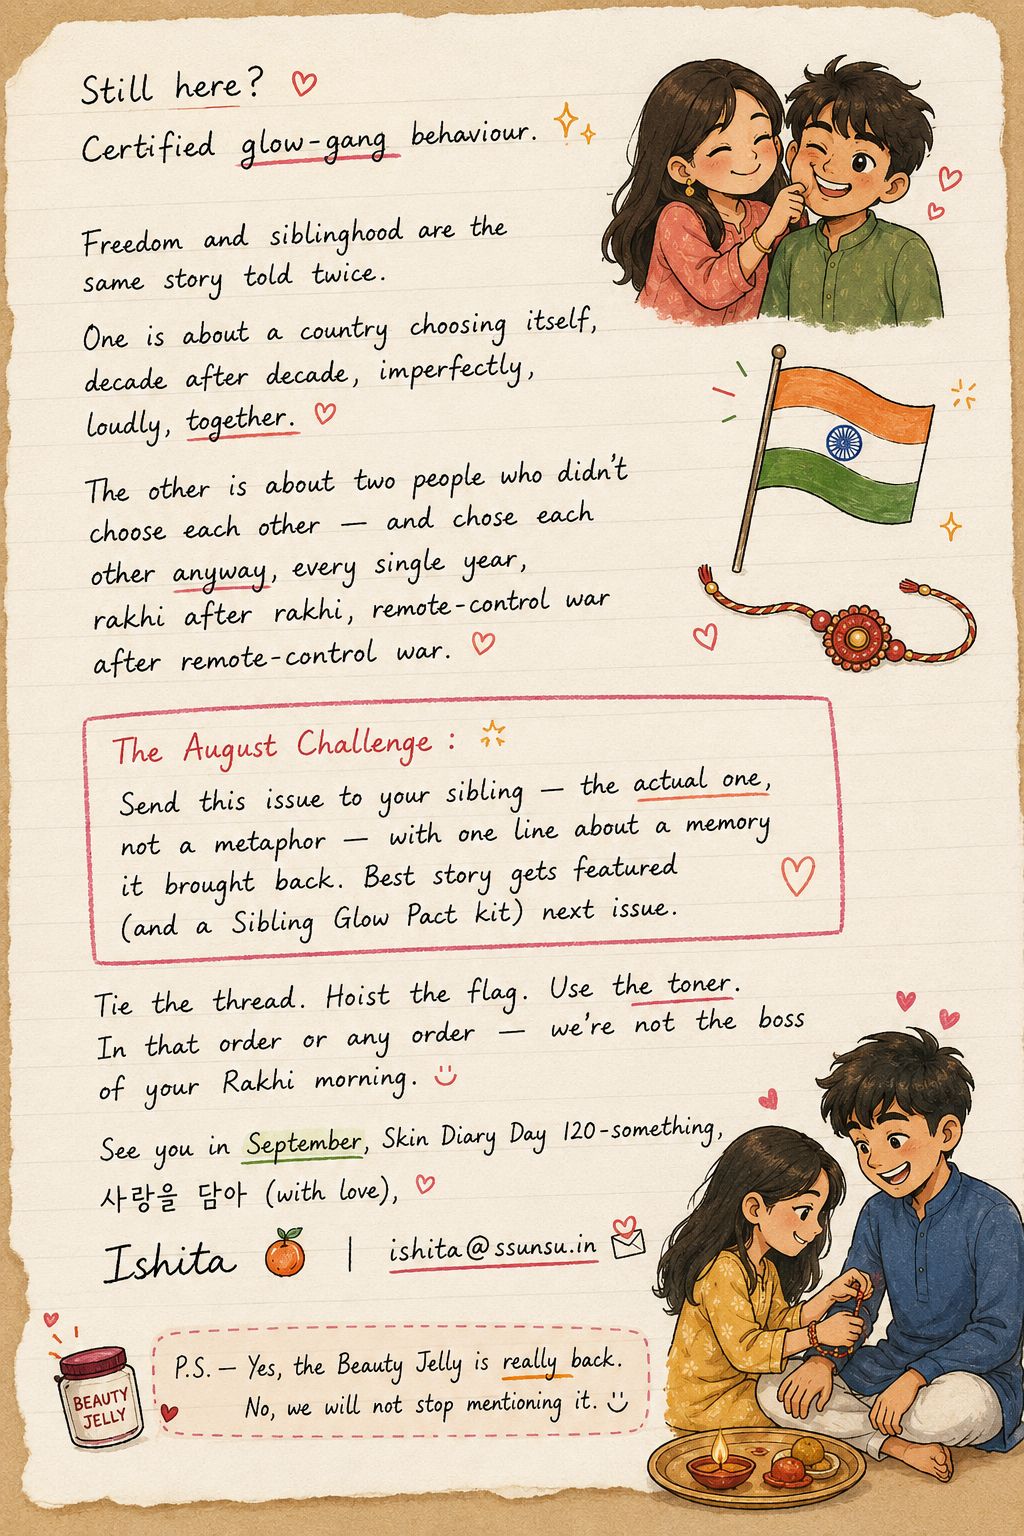 Still here?
Certified glow-gang behaviour.
Freedom and siblinghood are the
same story told twice.
One is about a country choosing itself,
decade after decade, imperfectly,
loudly, together.
The other is about two people who didn't
choose each other — and chose each
other anyway, every single year,
rakhi after rakhi, remote-control war
after remote-control war.
The August Challenge :
Send this issue to your sibling — the actual one,
not a metaphor — with one line about a memory
it brought back. Best story gets featured
(and a Sibling Glow Pact kit) next issue.
Tie the thread. Hoist the flag. Use the toner.
In that order or any order — we're not the boss
of your Rakhi morning.
See you in September, Skin Diary Day 120-something,
사랑을 담아 (with love),
Ishita | ishita@ssunsu.in
BEAUTY
JELLY
P.S. — Yes, the Beauty Jelly is really back.
No, we will not stop mentioning it.